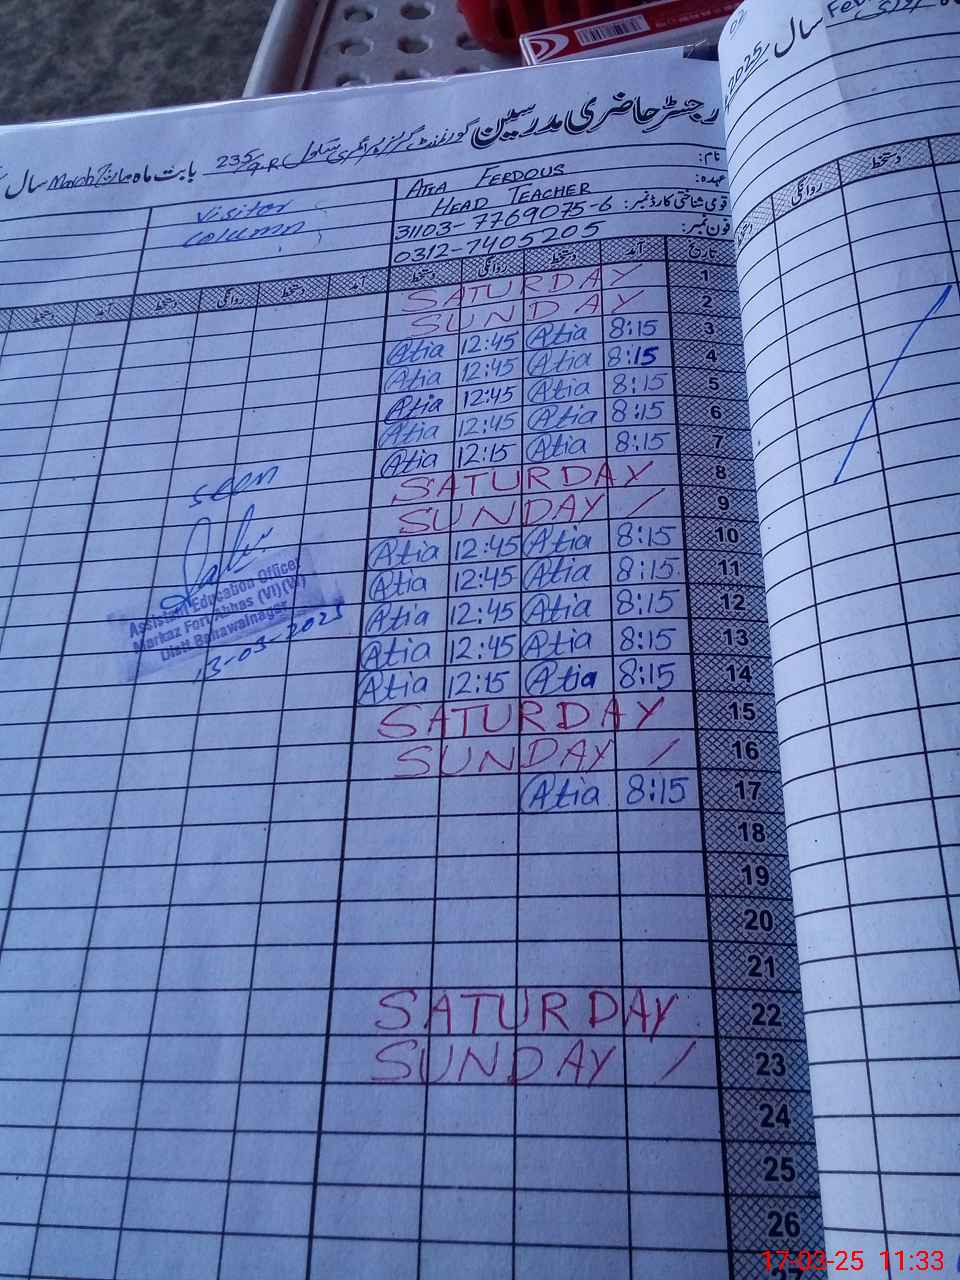 رجسٹر حاضری مدرسین گورنمنٹ گرلز پرائمری سکول 235/9-R بابت ماہ March سال
نام: ATIA FERDOUS
عہدہ: HEAD TEACHER
قومی شناختی کارڈ نمبر: 31103-7769075-6
فون نمبر: 0312-7405205
Visitor
column
تاریخ آمد دستخط روانگی دستخط آمد دستخط روانگی دستخط آمد دستخط
1 SATURDAY
2 SUNDAY
3 8:15 Atia 12:45 Atia
4 8:15 Atia 12:45 Atia
5 8:15 Atia 12:45 Atia
6 8:15 Atia 12:45 Atia
7 8:15 Atia 12:15 Atia
8 SATURDAY
9 SUNDAY /
10 8:15 Atia 12:45 Atia
11 8:15 Atia 12:45 Atia
12 8:15 Atia 12:45 Atia
13 8:15 Atia 12:45 Atia
14 8:15 Atia 12:15 Atia
15 SATURDAY
16 SUNDAY /
17 8:15 Atia
18
19
20
21
22 SATURDAY
23 SUNDAY /
24
25
26
seen
Assistant Education Officer
Markaz Fort Abbas (VI)(W)
Distt Bahawalnagar
13-03-2025
2025 سال
دستخط روانگی دستخط
17-03-25 11:33